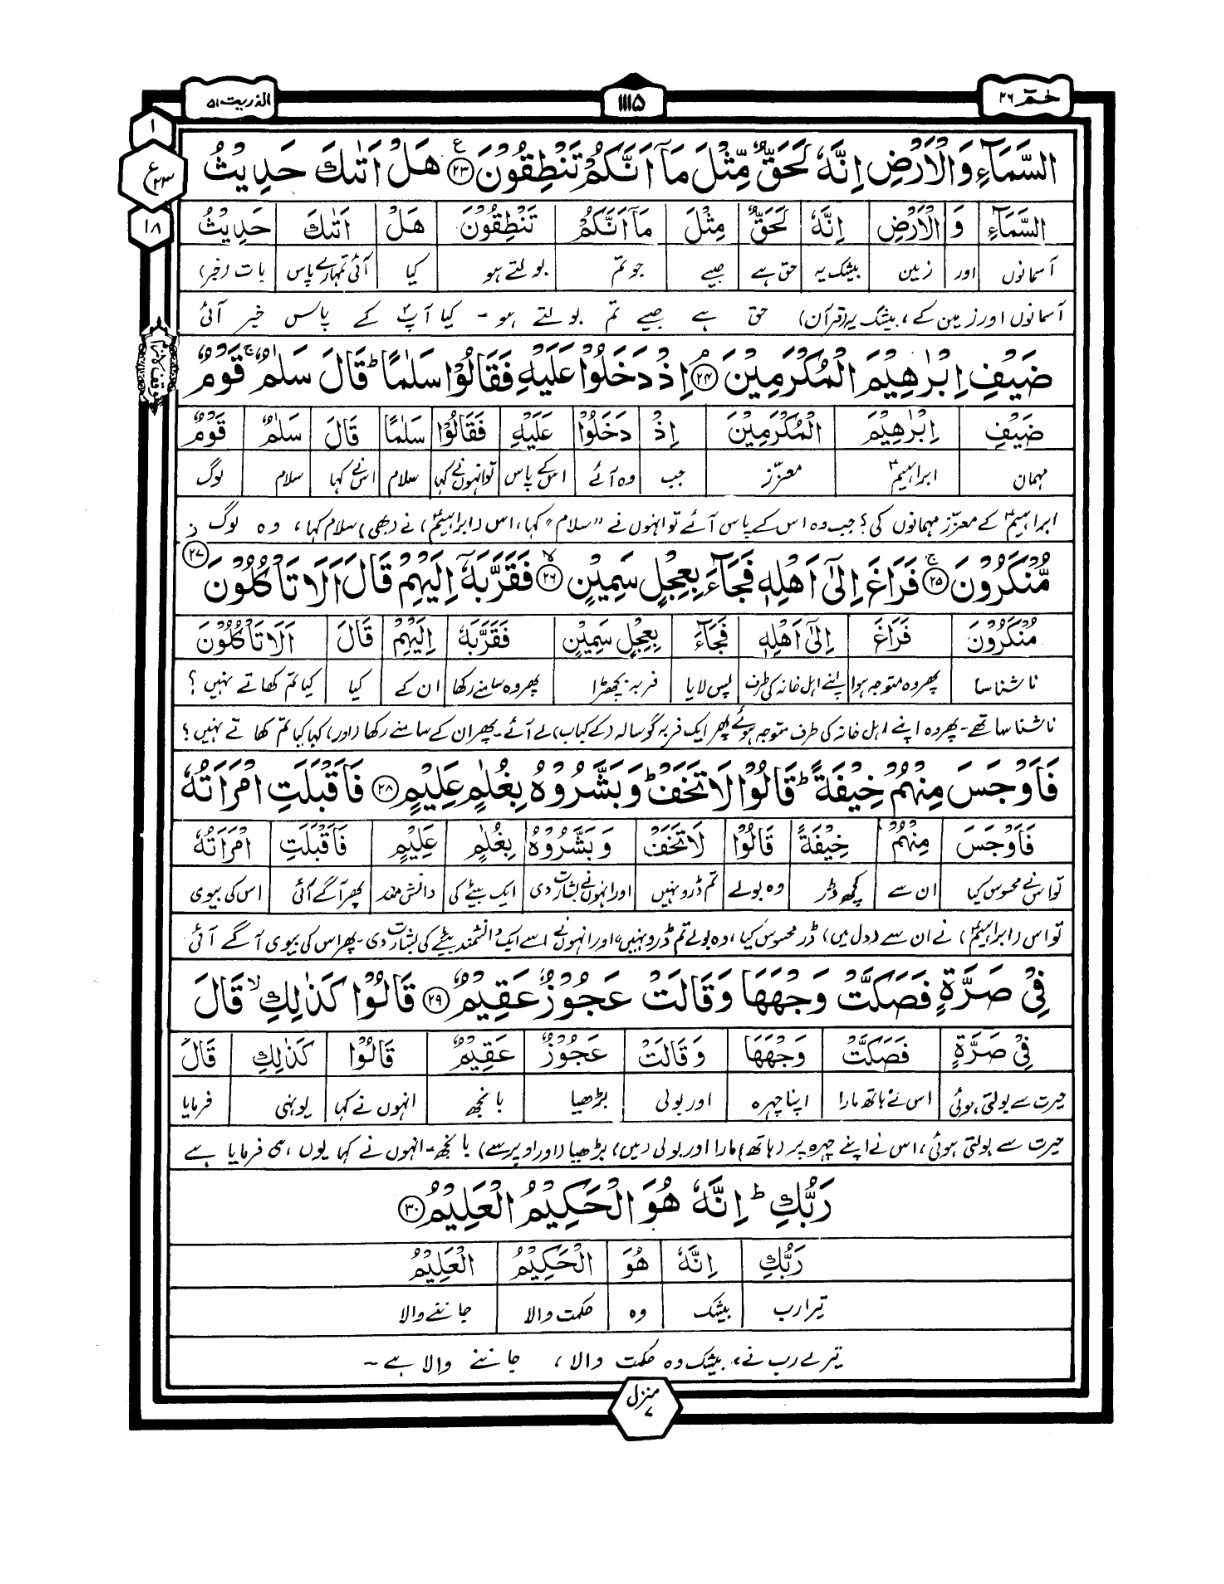 حٰمٓ ۲۶
۱۱۱۵
الذٰریٰت ۵۱
۱
ع
۲۳
۱۸
السَّمَآءِ وَالْاَرْضِ اِنَّهٗ لَحَقٌّ مِّثْلَ مَآ اَنَّكُمْ تَنْطِقُوْنَ ﴿۲۳﴾ ع هَلْ اَتٰىكَ حَدِیْثُ
السَّمَآءِ وَ الْاَرْضِ اِنَّهٗ لَحَقٌّ مِثْلَ مَآ اَنَّكُمْ تَنْطِقُوْنَ هَلْ اَتٰىكَ حَدِیْثُ
آسمانوں اور زمین بیشک یہ حق ہے جیسے جو تم بولتے ہو کیا آئی تمہارے پاس بات (خبر)
آسمانوں اور زمین کے، بیشک یہ (قرآن) حق ہے جیسے تم بولتے ہو ۔ کیا آپؐ کے پاس خبر آئی
ضَیْفِ اِبْرٰهِیْمَ الْمُكْرَمِیْنَ ﴿۲۴﴾ اِذْ دَخَلُوْا عَلَیْهِ فَقَالُوْا سَلٰمًا ؕ قَالَ سَلٰمٌ ۚ قَوْمٌ
ضَیْفِ اِبْرٰهِیْمَ الْمُكْرَمِیْنَ اِذْ دَخَلُوْا عَلَیْهِ فَقَالُوْا سَلٰمًا قَالَ سَلٰمٌ قَوْمٌ
مہمان ابراہیمؑ معزّز جب وہ آئے اس کے پاس تو انہوں نے کہا سلام اس نے کہا سلام لوگ
ابراہیمؑ کے معزّز مہمانوں کی؟ جب وہ اس کے پاس آئے تو انہوں نے "سلام" کہا، اس (ابراہیمؑ) نے (بھی) سلام کہا، وہ لوگ
مُّنْكَرُوْنَ ﴿۲۵﴾ ۚ فَرَاغَ اِلٰۤی اَهْلِهٖ فَجَآءَ بِعِجْلٍ سَمِیْنٍ ﴿۲۶﴾ ۙ فَقَرَّبَهٗۤ اِلَیْهِمْ قَالَ اَلَا تَاْكُلُوْنَ ﴿۲۷﴾ ز
مُنْكَرُوْنَ فَرَاغَ اِلٰۤی اَهْلِهٖ فَجَآءَ بِعِجْلٍ سَمِیْنٍ فَقَرَّبَهٗ اِلَیْهِمْ قَالَ اَلَا تَاْكُلُوْنَ
نا شناسا پھر وہ متوجہ ہوا اپنے اہل خانہ کی طرف پس لایا فربہ بچھڑا پھر وہ سامنے رکھا ان کے کہا کیا تم کھاتے نہیں؟
ناشناسا تھے ۔ پھر وہ اپنے اہل خانہ کی طرف متوجہ ہوئے پھر ایک فربہ گوسالہ (کے کباب) لے آئے ۔ پھر ان کے سامنے رکھا (اور) کہا کیا تم کھاتے نہیں؟
فَاَوْجَسَ مِنْهُمْ خِیْفَةً ؕ قَالُوْا لَا تَخَفْ ؕ وَبَشَّرُوْهُ بِغُلٰمٍ عَلِیْمٍ ﴿۲۸﴾ فَاَقْبَلَتِ امْرَاَتُهٗ
فَاَوْجَسَ مِنْهُمْ خِیْفَةً قَالُوْا لَا تَخَفْ وَ بَشَّرُوْهُ بِغُلٰمٍ عَلِیْمٍ فَاَقْبَلَتِ امْرَاَتُهٗ
تو اس نے محسوس کیا ان سے کچھ ڈر وہ بولے تم ڈرو نہیں اور انہوں نے بشارت دی ایک بیٹے کی دانش مند پھر آگے آئی اس کی بیوی
تو اس (ابراہیمؑ) نے ان سے (دل میں) ڈر محسوس کیا، وہ بولے تم ڈرو نہیں، اور انہوں نے اسے ایک دانشمند بیٹے کی بشارت دی ۔ پھر اس کی بیوی آگے آئی
فِیْ صَرَّةٍ فَصَكَّتْ وَجْهَهَا وَقَالَتْ عَجُوْزٌ عَقِیْمٌ ﴿۲۹﴾ قَالُوْا كَذٰلِكِ ۙ قَالَ
فِیْ صَرَّةٍ فَصَكَّتْ وَجْهَهَا وَ قَالَتْ عَجُوْزٌ عَقِیْمٌ قَالُوْا كَذٰلِكِ قَالَ
حیرت سے بولتی ہوئی اس نے ہاتھ مارا اپنا چہرہ اور بولی بڑھیا بانجھ انہوں نے کہا یونہی فرمایا
حیرت سے بولتی ہوئی، اس نے اپنے چہرہ پر (ہاتھ) مارا اور بولی (میں) بڑھیا (اور اوپر سے) بانجھ ۔ انہوں نے کہا یوں ہی فرمایا ہے
رَبُّكِ ؕ اِنَّهٗ هُوَ الْحَكِیْمُ الْعَلِیْمُ ﴿۳۰﴾
رَبُّكِ اِنَّهٗ هُوَ الْحَكِیْمُ الْعَلِیْمُ
تیرا رب بیشک وہ حکمت والا جاننے والا
تیرے رب نے، بیشک وہ حکمت والا، جاننے والا ہے ۔
منزل ۷